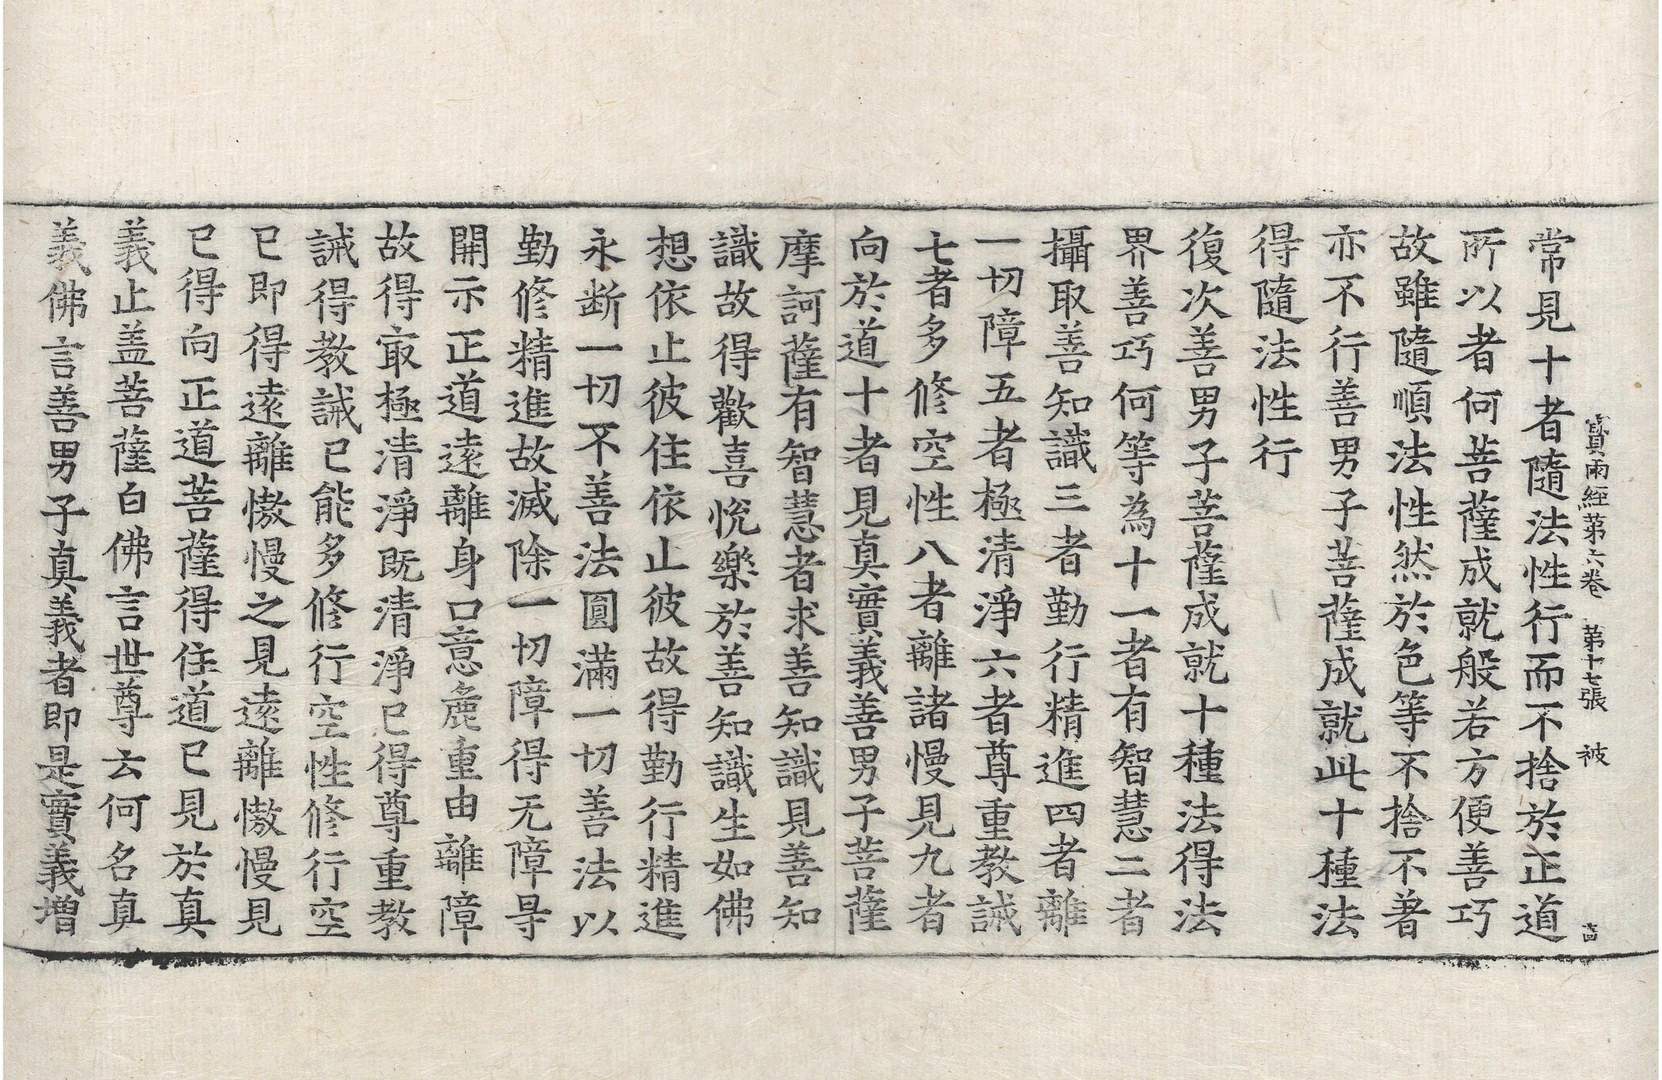 寶雨經第六卷 第十七張 被
常見十者隨法性行而不捨於正道
所以者何菩薩成就般若方便善巧
故雖隨順法性然於色等不捨不著
亦不行善男子菩薩成就此十種法
得隨法性行
復次善男子菩薩成就十種法得法
界善巧何等為十一者有智慧二者
攝取善知識三者勤行精進四者離
一切障五者極清淨六者尊重教誡
七者多修空性八者離諸慢見九者
向於道十者見真實義善男子菩薩
摩訶薩有智慧者求善知識見善知
識故得歡喜悅樂於善知識生如佛
想依止彼住依止彼故得勤行精進
永断一切不善法圓滿一切善法以
勤修精進故滅除一切障得无障㝵
開示正道遠離身口意麁重由離障
故得㝡極清淨既清淨已得尊重教
誡得教誡已能多修行空性修行空
已即得遠離憿慢之見遠離憿慢見
已得向正道菩薩得住道已見於真
義止盖菩薩白佛言世尊云何名真
義佛言善男子真義者即是實義增